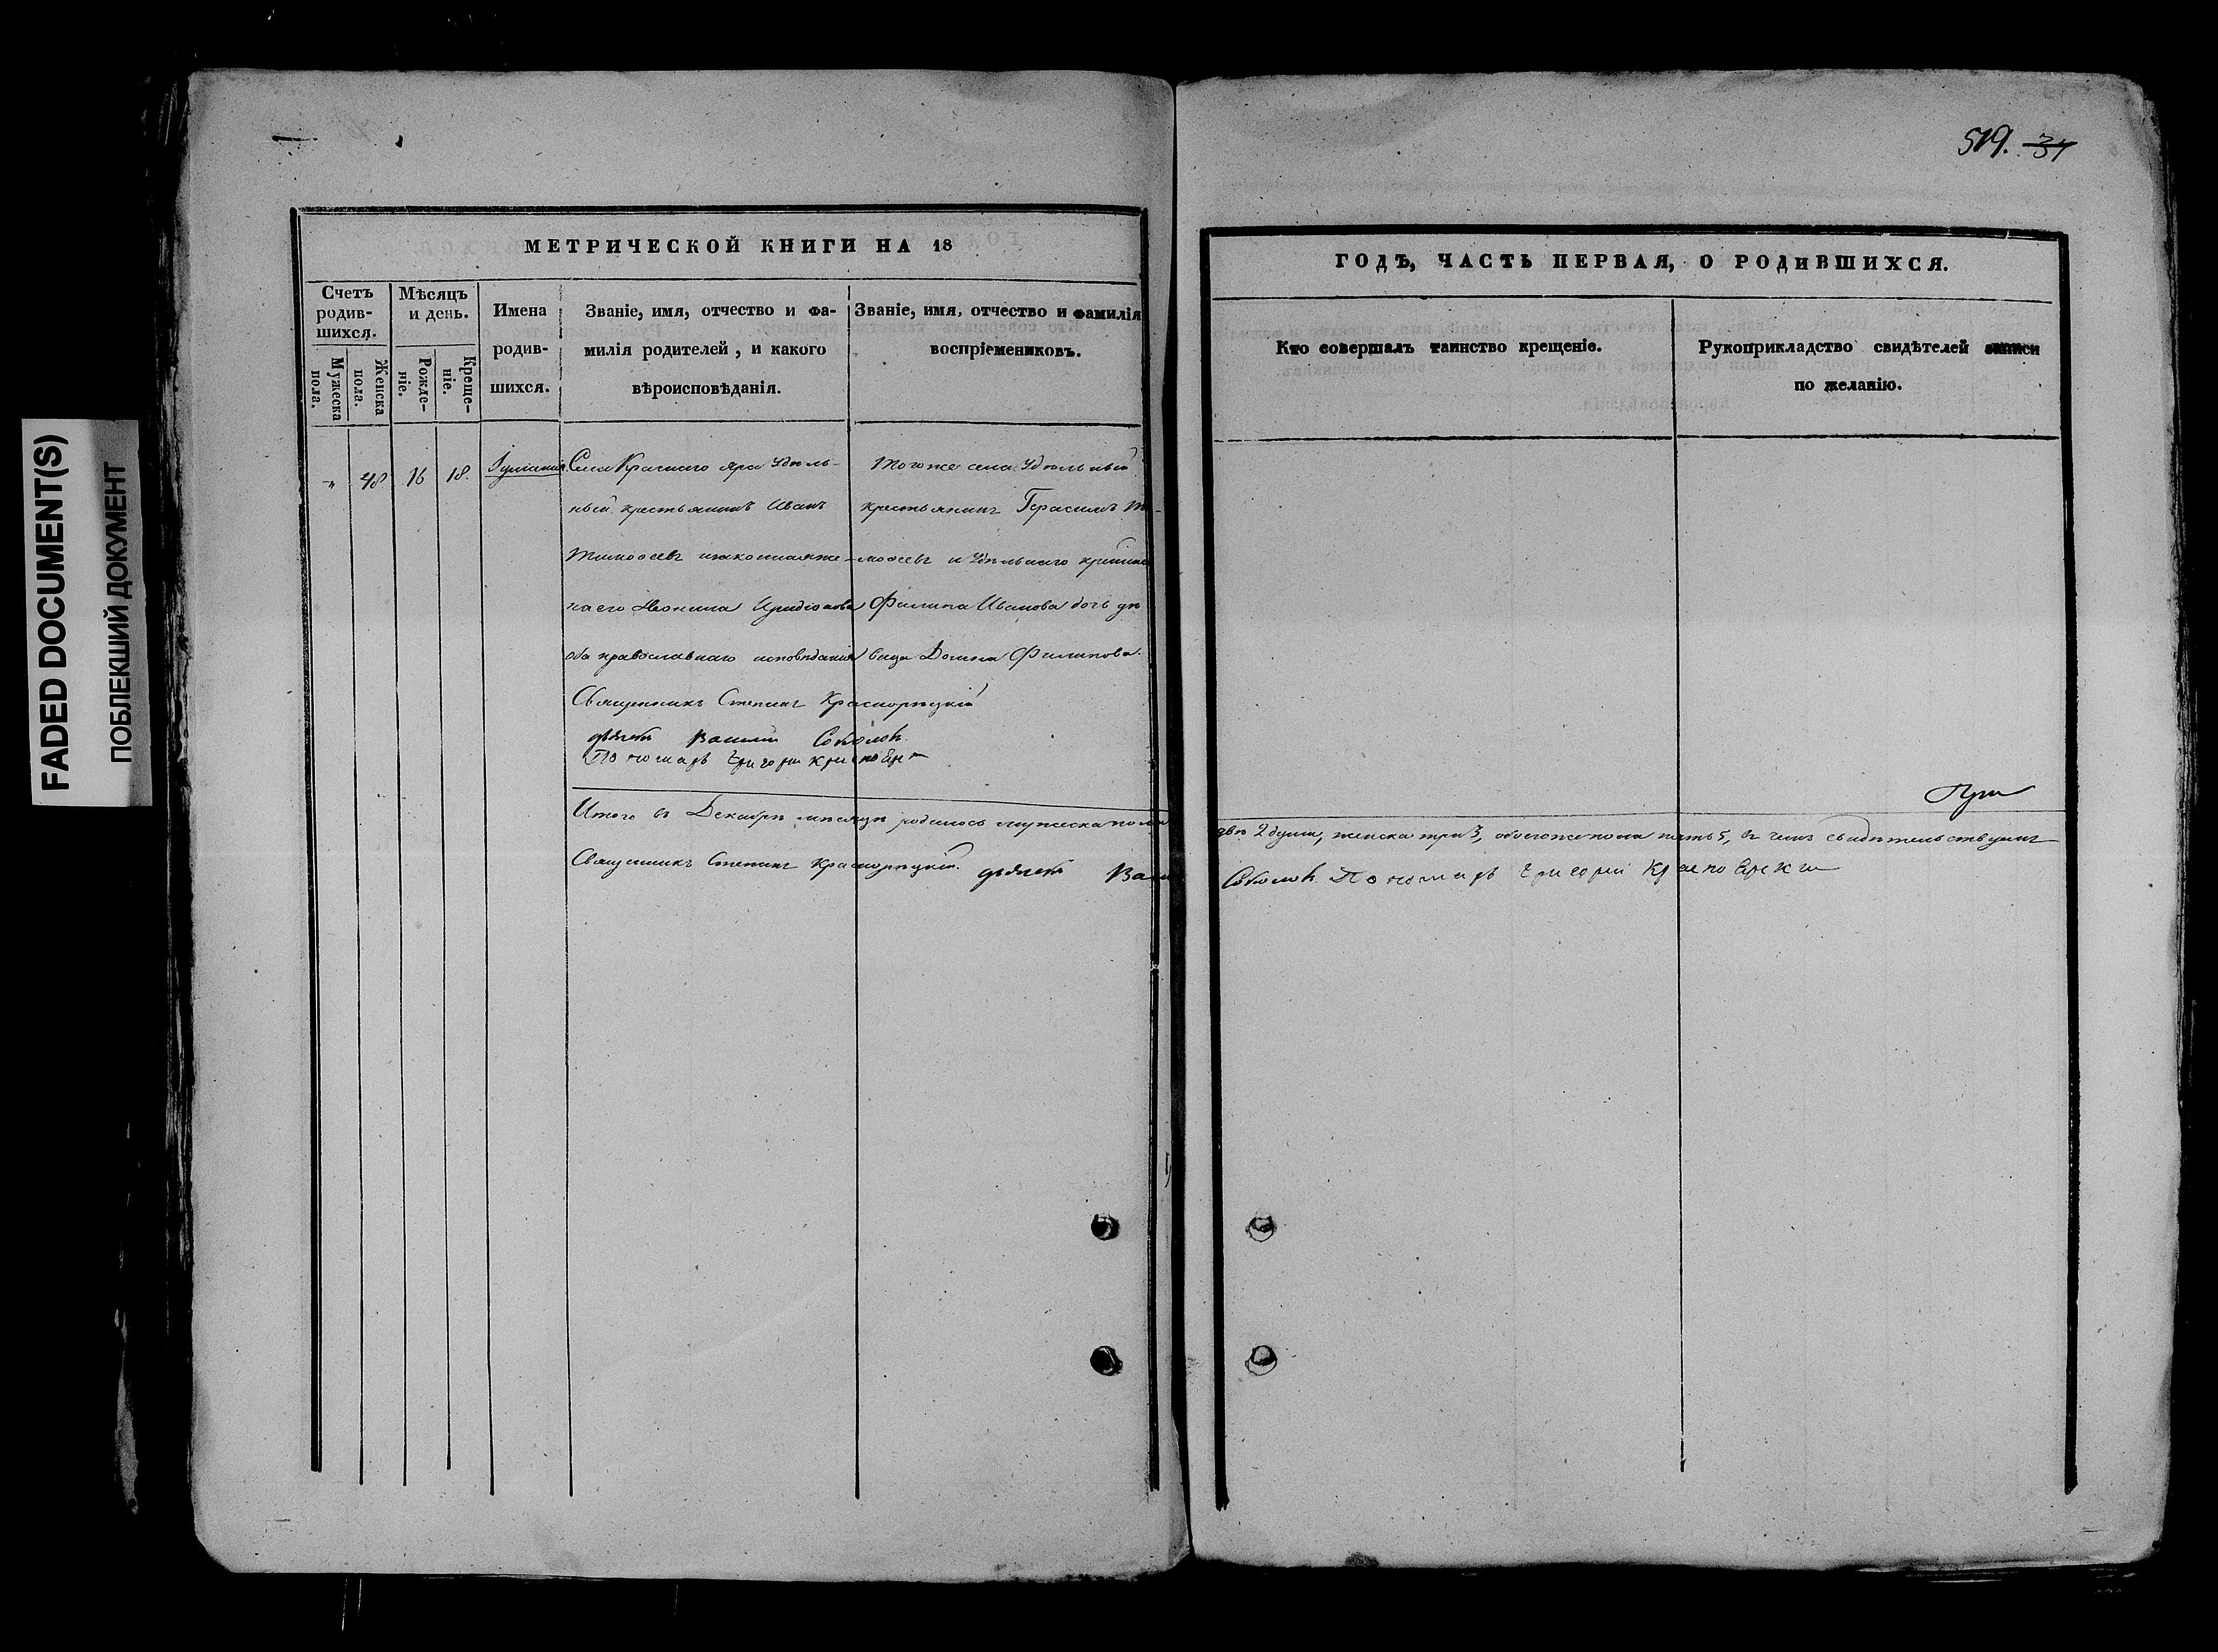 FADED DOCUMENT(S)
ПОБЛЕКШИЙ ДОКУМЕНТ
519. 34
МЕТРИЧЕСКОЙ КНИГИ НА 18
ГОДЪ, ЧАСТЬ ПЕРВАЯ, О РОДИВШИХСЯ.
Счетъ родив-шихся.
Мужеска пола.
Женска пола.
Мѣсяцъ и день.
Рожде-ніе.
Креще-ніе.
Имена
родив-
шихся.
Званіе, имя, отчество и фа-
милія родителей, и какого
вѣроисповѣданія.
Званіе, имя, отчество и фамилія
воспріемниковъ.
Кто совершалъ таинство крещеніе.
Рукоприкладство свидѣтелей записи
по желанію.
" 48 16 18. Іуліанія
Села Краснаго яра Удѣль-
ный крестьянинъ Иванъ
Тимофеевъ и законная же-
на его
оба православнаго исповѣданія
Того же села Удѣльный
крестьянинъ Герасимъ Ти-
мофеевъ и Удѣльнаго
Филипа Иванова дочь дѣ
вица Домна Филипова.
Священникъ Стефанъ Красноръцкій
дьячекъ Василій Соколовъ
Пономарь Григорій
При
Итого въ Декабрѣ мѣсяцѣ родилось мужеска пола двѣ 2 души, женска три 3, обоего же пола пять 5, въ чемъ свидѣтельствуемъ
Священникъ Стефанъ Красноръцкій. дьячекъ Василій Соколовъ Пономарь Григорій